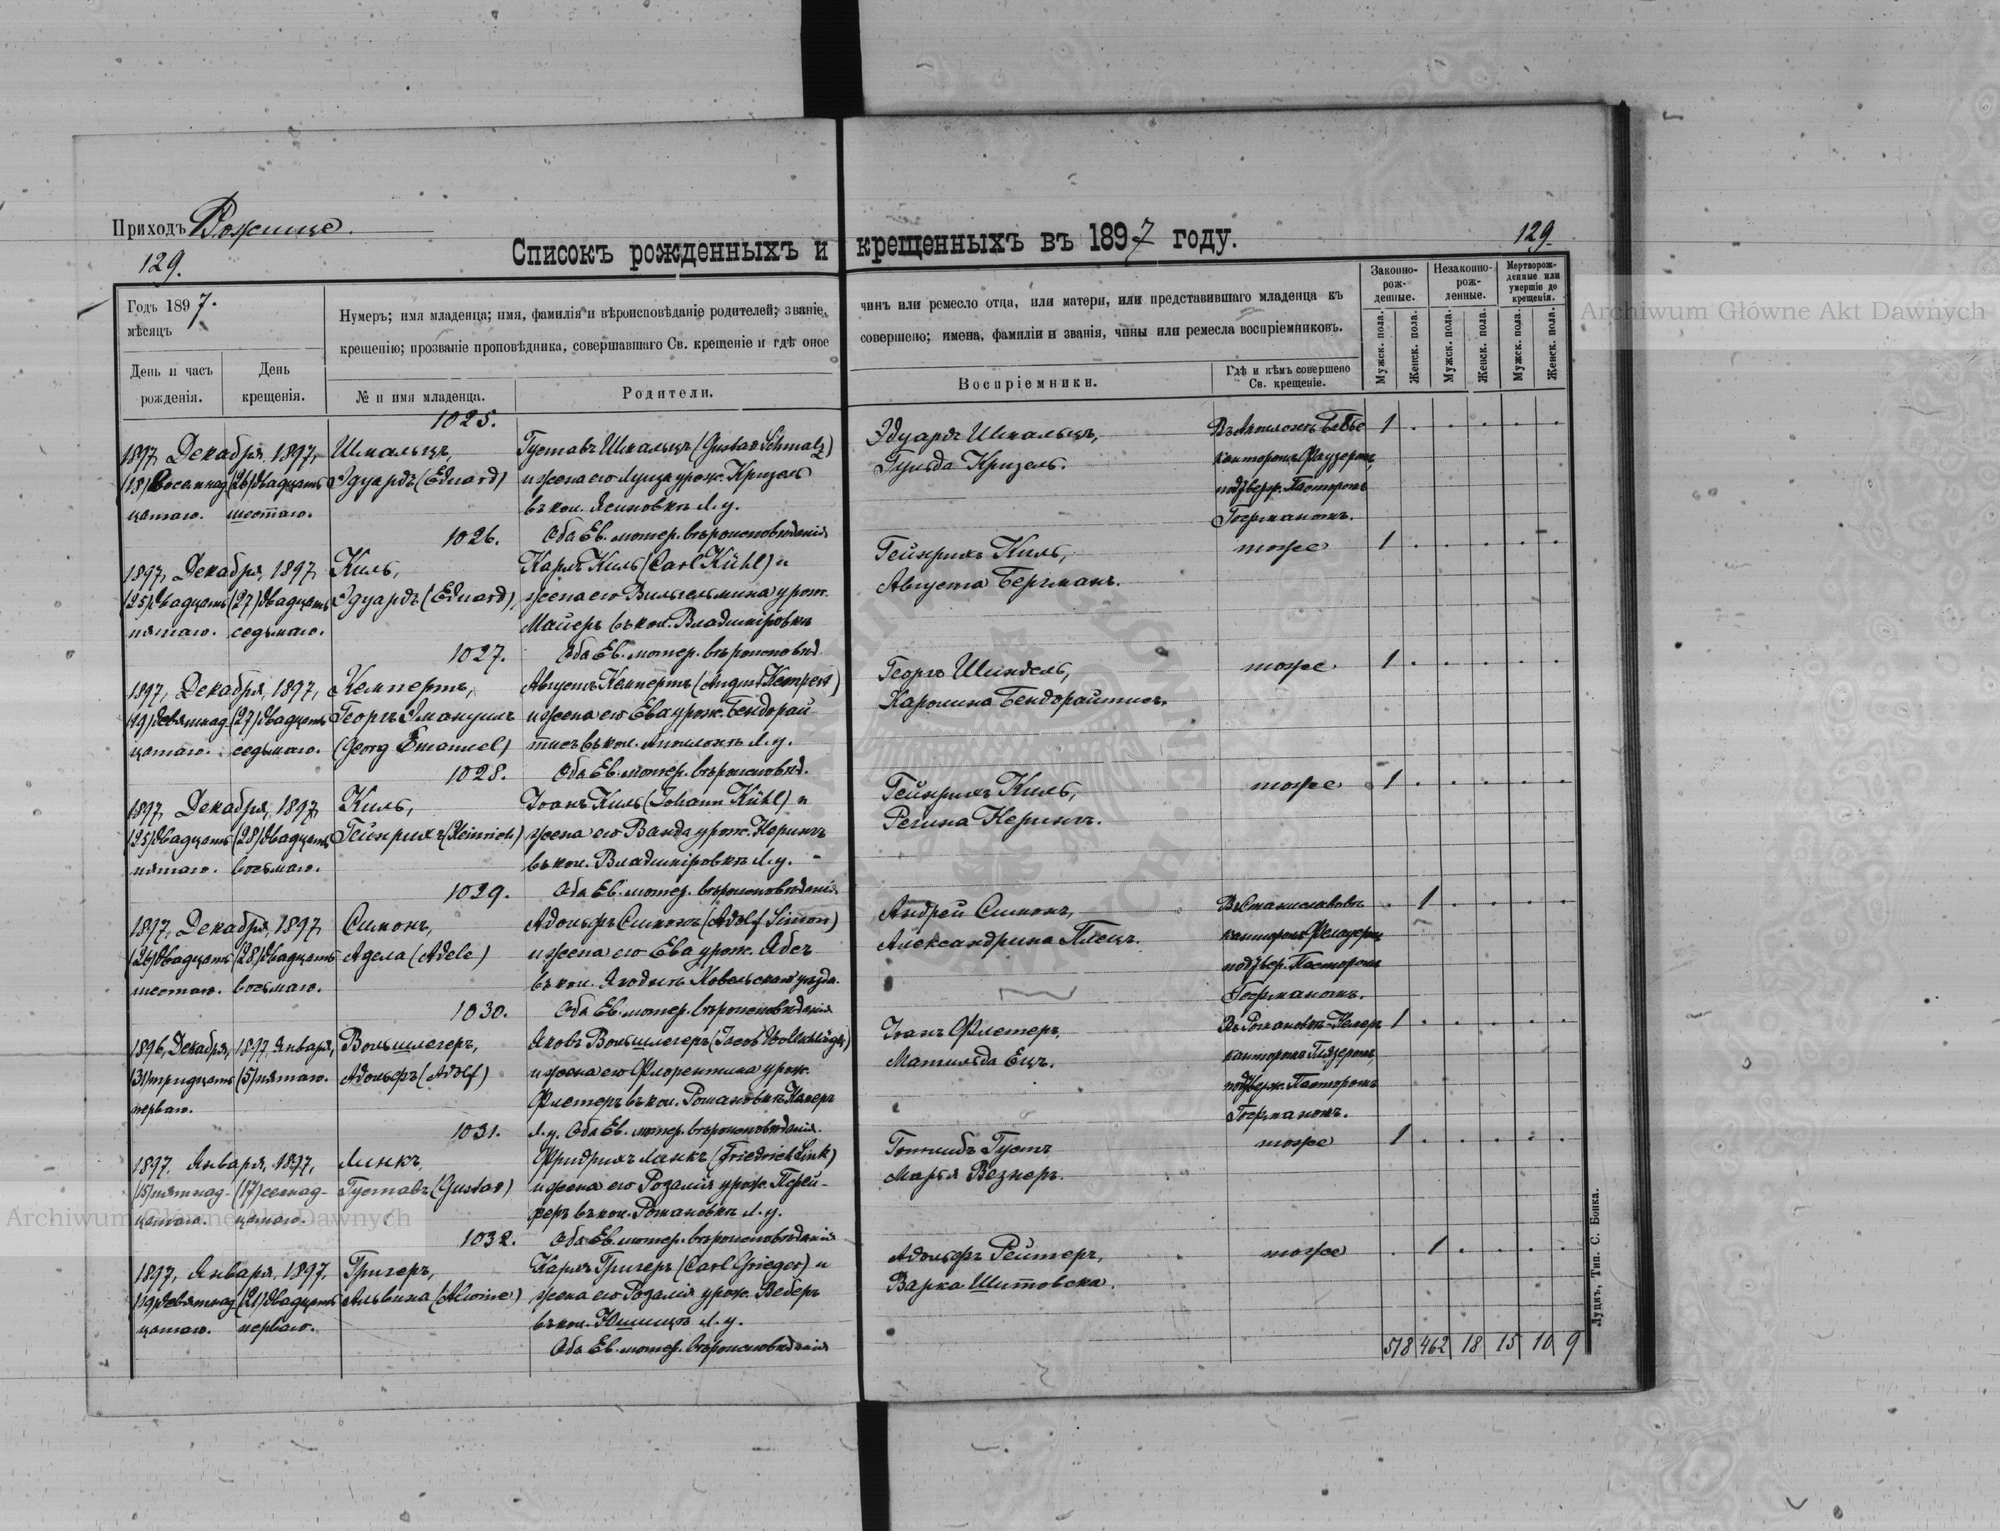 Приходъ Рожище.
129.
129.
Списокъ рожденныхъ и крещенныхъ въ 1897 году.
Годъ 1897.
мѣсяцъ
День и часъ рожденія.
День крещенія.
Нумеръ; имя младенца; имя, фамилія и вѣроисповѣданіе родителей; званіе, чинъ или ремесло отца, или матери, или представившаго младенца къ
крещенію; прозваніе проповѣдника, совершавшаго Св. крещеніе и гдѣ оное совершено; имена, фамиліи и званія, чины или ремесла воспріемниковъ.
№ и имя младенца.
Родители.
Воспріемники.
Гдѣ и кѣмъ совершено Св. крещеніе.
Законно-рож-денные.
Незаконно-рож-денные.
Мертворож-денные или умершіе до крещенія.
Мужск. пола.
Женск. пола.
Мужск. пола.
Женск. пола.
Мужск. пола.
Женск. пола.
1025.
1897, Декабря, 1897, Шмальцъ, Густавъ Шмальцъ (Gustav Schmalz) Эдуардъ Шмальцъ, 1
(18) восемнад (26) двадцать Эдуардъ (Eduard) и жена его Луиза урож. Кризель Гульда Кризель. канторомъ
цатаго. шестаго. въ кол. Яновкѣ Л. у. подтверж. Пасторомъ
1026. Оба Ев. лютер. вѣроисповѣданія Гофманомъ.
1897, Декабря, 1897, Киль, Карлъ Киль (Carl Kühl) и Гейнрихъ Киль, тоже 1
(25) двадцать (27) двадцать Эдуардъ (Eduard), жена его Вильгельмина урож. Августа Бергманъ.
пятаго. седьмаго. Майеръ въ кол. Владиміровкѣ
1027. Оба Ев. лютер. вѣроисповѣд.
1897, Декабря, 1897, Кемпертъ, Августъ Кемпертъ (August Kempert) Георгъ Шиндель, тоже. 1
(19) девятнад (27) двадцать Георгъ Эмануилъ и жена его Ева урож. Бендорай- Каролина Бендорайтисъ.
цатаго. седьмаго. (Georg Emanuel) тисъ въ кол. Аполонкѣ Л. у.
1028. Оба Ев. лютер. вѣроисповѣд.
1897, Декабря, 1897, Киль, Іоанъ Киль (Johann Kühl) и Гейнрихъ Киль, тоже 1
(25) двадцать (28) двадцать Гейнрихъ (Heinrich) жена его Ванда урож. Керингъ Регина Керингъ.
пятаго. восьмаго. въ кол. Владиміровкѣ Л. у.
1029. Оба Ев. лютер. вѣроисповѣданія
1897, Декабря, 1897, Симонъ, Адольфъ Симонъ (Adolf Simon) Андрей Симонъ, 1
(26) двадцать (28) двадцать Адела (Adele) и жена его Ева урож. Ябсъ Александрина Плецъ. канторомъ
шестаго. восьмаго. въ кол. Ягодинъ Ковельскаго уѣзда. подтвер. Пасторомъ
1030. Оба Ев. лютер. вѣроисповѣданія Гофманомъ.
1896, Декабря, 1897, Января, Вольшлегеръ, Яковъ Вольшлегеръ (Jacob Wollschläger) Іоанъ Флетеръ, Въ Романовкѣ-Келеръ 1
(31) тридцать (5) пятаго. Адольфъ (Adolf) и жена его Флорентина урож. Матильда Ецъ. канторомъ Глязеромъ,
перваго. Флетеръ въ кол. Романовкѣ Келеръ подтверж. Пасторомъ
1031. Л. у. Оба Ев. лютер. вѣроисповѣданія. Гофманомъ.
1897, Января, 1897, Линкъ, Фридрихъ Линкъ (Friedrich Link) Готлибъ Густъ тоже 1
(15) пятнад- (17) семнад- Густавъ (Gustav) и жена его Розалія урож. Пфей- Марья Везнеръ.
цатаго. цатаго. феръ въ кол. Романовкѣ Л. у.
1032. Оба Ев. лютер. вѣроисповѣданія
1897, Января, 1897, Григеръ, Карлъ Григеръ (Carl Grieger) и Адольфъ Рейтеръ, тоже 1
(19) девятнад (21) двадцать Альвина (Alwine) жена его Розалія урож. Веберъ Варка Шитовска.
цатаго. перваго. въ кол. Юшицѣ Л. у.
Оба Ев. лютер. вѣроисповѣданія
518 462 18 15 10 9
Луцкъ, Тип. С. Бонка.
Archiwum Główne Akt Dawnych
Archiwum Główne Akt Dawnych